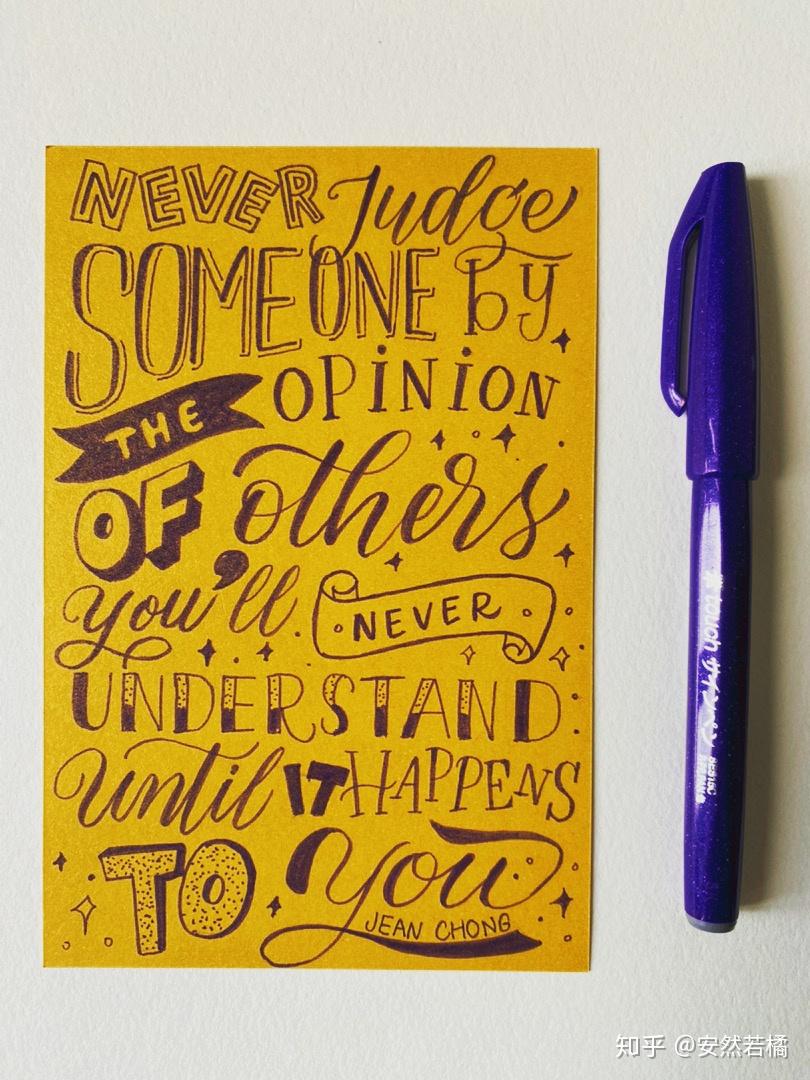 NEVER Judge
SOMEONE by
THE OPINION
OF others
you'll NEVER
UNDERSTAND
Until IT HAPPENS
TO you
JEAN CHONG
touch サインペン
SES15C
知乎 @安然若橘